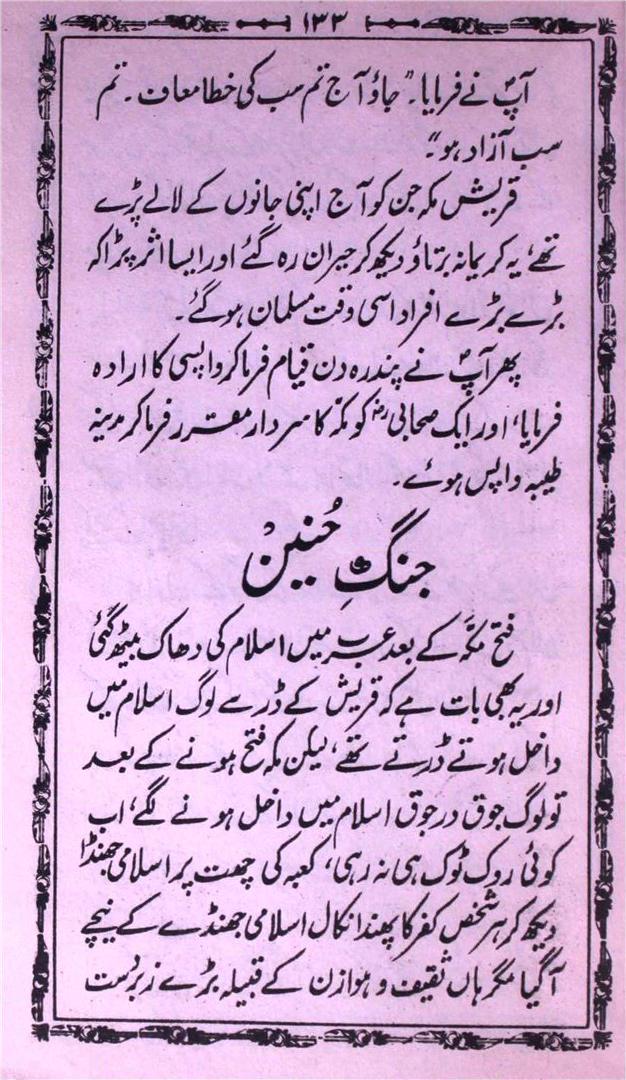 ۱۳۳
آپؐ نے فرمایا۔ "جاؤ آج تم سب کی خطا معاف۔ تم
سب آزاد ہو"۔
قریش مکہ جن کو آج اپنی جانوں کے لالے پڑے
تھے، یہ کریمانہ برتاؤ دیکھ کر حیران رہ گئے اور ایسا اثر پڑا کہ
بڑے بڑے افراد اسی وقت مسلمان ہو گئے۔
پھر آپؐ نے پندرہ دن قیام فرما کر واپسی کا ارادہ
فرمایا، اور ایک صحابیؓ کو مکہ کا سردار مقرر فرما کر مدینہ
طیبہ واپس ہوئے۔
جنگِ حُنین
فتح مکہ کے بعد عرب میں اسلام کی دھاک بیٹھ گئی
اور یہ بھی بات ہے کہ قریش کے ڈر سے لوگ اسلام میں
داخل ہوتے ڈرتے تھے، لیکن مکہ فتح ہونے کے بعد
تو لوگ جوق در جوق اسلام میں داخل ہونے لگے، اب
کوئی روک ٹوک ہی نہ رہی، کعبہ کی چھت پر اسلامی جھنڈا
دیکھ کر ہر شخص کفر کا پھندا نکال اسلامی جھنڈے کے نیچے
آگیا مگر ہاں ثقیف و ہوازن کے قبیلہ بڑے زبردست